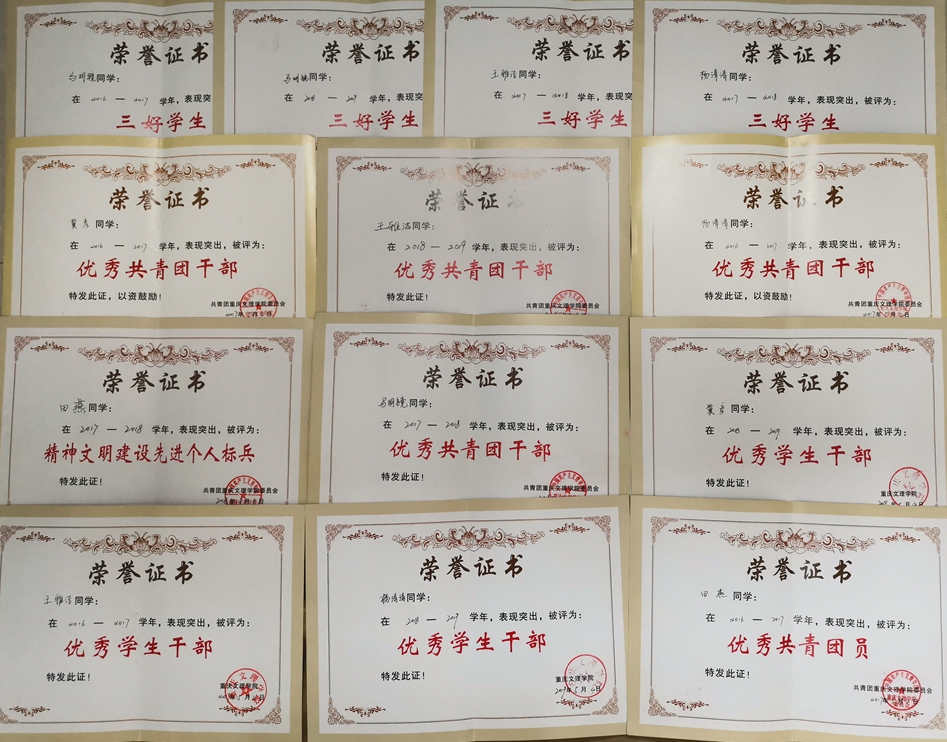 荣誉证书
同学:
在 2016 — 2017 学年，表现突
三好学生
荣誉证书
同学:
在 2018 — 2019 学年，表现突
三好学生
荣誉证书
王雅洁同学:
在 2017 — 2018 学年，表现突
三好学生
荣誉证书
杨涛涛同学:
在 2017 — 2018 学年，表现突出，被评为:
三好学生
荣誉证书
同学:
在 2016 — 2017 学年，表现突出，被评为:
优秀共青团干部
特发此证，以资鼓励!
共青团重庆文理学院委员会
荣誉证书
王雅洁同学:
在 2018 — 2019 学年，表现突出，被评为:
优秀共青团干部
特发此证!
共青团重庆文理学院委员会
荣誉证书
杨涛涛同学:
在 2016 — 2017 学年，表现突出，被评为:
优秀共青团干部
特发此证，以资鼓励!
共青团重庆文理学院委员会
荣誉证书
田燕同学:
在 2017 — 2018 学年，表现突出，被评为:
精神文明建设先进个人标兵
特发此证!
共青团重庆文理学院委员会
荣誉证书
同学:
在 2017 — 2018 学年，表现突出，被评为:
优秀共青团干部
特发此证!
共青团重庆文理学院委员会
荣誉证书
同学:
在 2018 — 2019 学年，表现突出，被评为:
优秀学生干部
特发此证!
重庆文理学院
荣誉证书
王雅洁同学:
在 2016 — 2017 学年，表现突出，被评为:
优秀学生干部
特发此证!
重庆文理学院
荣誉证书
杨涛涛同学:
在 2018 — 2019 学年，表现突出，被评为:
优秀学生干部
特发此证!
重庆文理学院
荣誉证书
田燕 同学:
在 2016 — 2017 学年，表现突出，被评为:
优秀共青团员
特发此证!
共青团重庆文理学院委员会